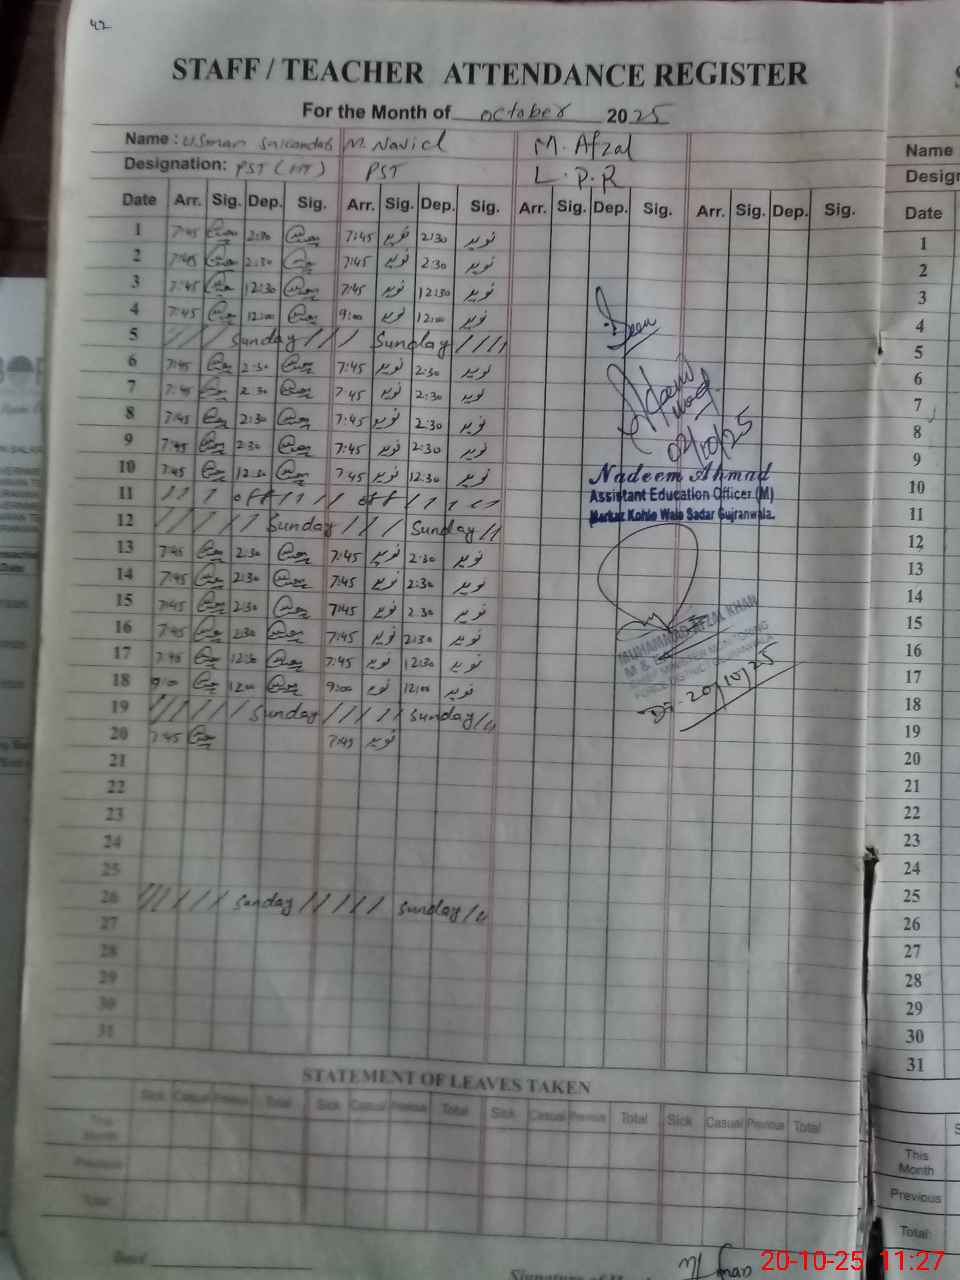 42
STAFF / TEACHER ATTENDANCE REGISTER
For the Month of October 2025
Name : Usman M. Navid M. Afzal
Designation: PST (HT) PST L.P.R
Date Arr. Sig. Dep. Sig. Arr. Sig. Dep. Sig. Arr. Sig. Dep. Sig. Arr. Sig. Dep. Sig.
1 7:45 2:30 7:45 نوید 2:30 نوید
2 7:45 2:30 7:45 نوید 2:30 نوید
3 7:45 12:30 7:45 نوید 12:30 نوید
4 7:45 12:00 9:00 نوید 12:00 نوید
5 / / / Sunday / / / Sunday / / / /
6 7:45 2:30 7:45 نوید 2:30 نوید
7 7:45 2:30 7:45 نوید 2:30 نوید
8 7:45 2:30 7:45 نوید 2:30 نوید
9 7:45 2:30 7:45 نوید 2:30 نوید
10 7:45 12:30 7:45 نوید 12:30 نوید
11 / / / off / / / / off / / / /
12 / / / / / / Sunday / / / Sunday / /
13 7:45 2:30 7:45 نوید 2:30 نوید
14 7:45 2:30 7:45 نوید 2:30 نوید
15 7:45 2:30 7:45 نوید 2:30 نوید
16 7:45 2:30 7:45 نوید 2:30 نوید
17 7:45 12:30 7:45 نوید 12:30 نوید
18 9:00 12:00 9:00 نوید 12:00 نوید
19 / / / / / / Sunday / / / / / Sunday / /
20 7:45 7:45 نوید
21
22
23
24
25
26 / / / / / / Sunday / / / / / Sunday / /
27
28
29
30
31
02/10/25
Nadeem Ahmad
Assistant Education Officer (M)
Markaz Kohlo Wala Sadar Gujranwala.
MUHAMMAD AFZAL KHAN
M & E
CHIEF MINISTER MONITORING
FORCE DISTRICT GUJRANWALA
Dt. 20/10/25
STATEMENT OF LEAVES TAKEN
Sick Casual Previous Total Sick Casual Previous Total Sick Casual Previous Total Sick Casual Previous Total
This Month
Previous
Total:
Signature of
Name
Date
1
2
3
4
5
6
7
8
9
10
11
12
13
14
15
16
17
18
19
20
21
22
23
24
25
26
27
28
29
30
31
This
Month
Previous
Total:
20-10-25 11:27